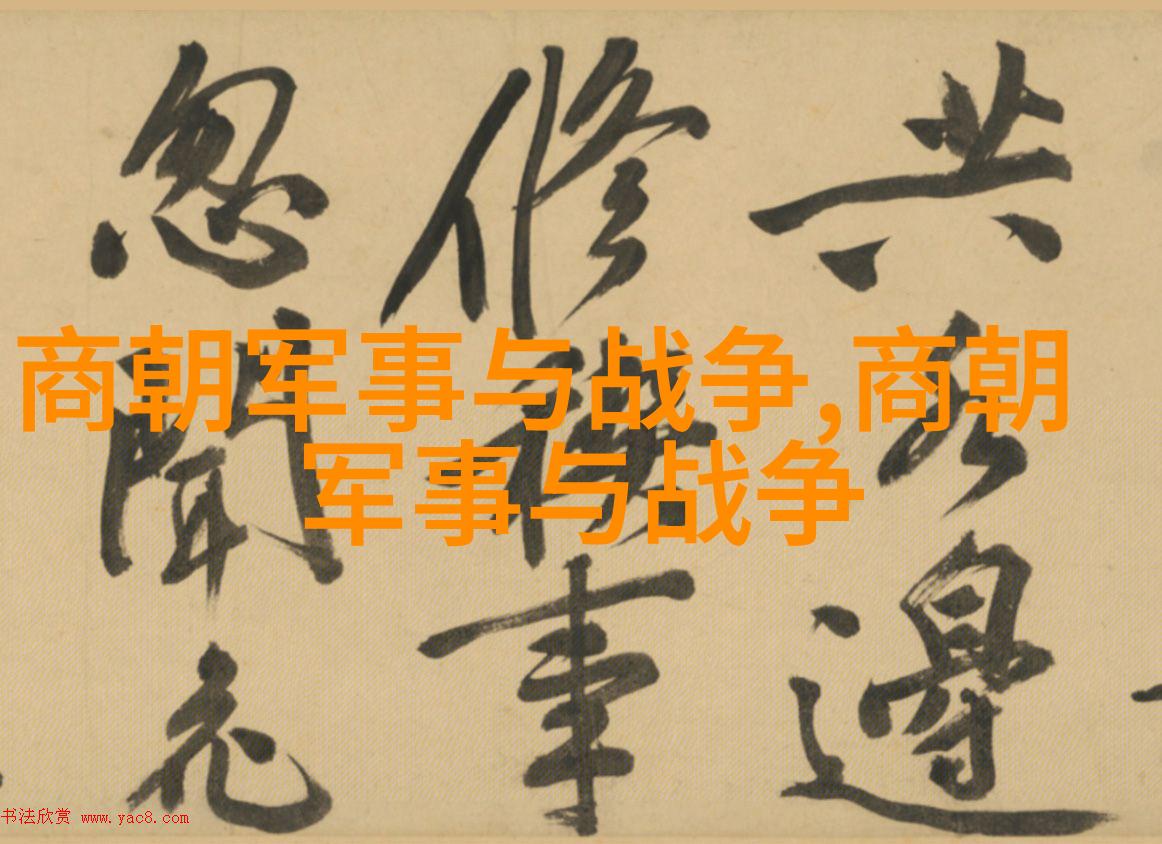 商朝军事与战争,商朝
军事与战争
共邊
修禊事
忽聞
书法欣赏 www.yac8.com